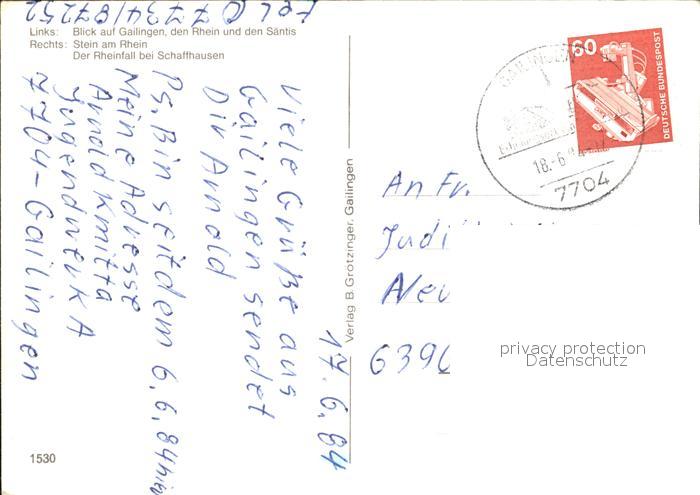 Links: Blick auf Gailingen, den Rhein und den Säntis
Rechts: Stein am Rhein
Der Rheinfall bei Schaffhausen
17.6.84
Viele Grüße aus
Gailingen sendet
Dir Arnold
Ps. Bin seitdem 6.6.84 hier
Meine Adresse
Arnold Kmitta
Jugendwerk A
7704-Gailingen
07734/87252
Verlag B. Grötzinger, Gailingen
60
DEUTSCHE BUNDESPOST
GAILINGEN
18.-6.
7704
An Fr.
Judi
Neu
639
privacy protection
Datenschutz
1530